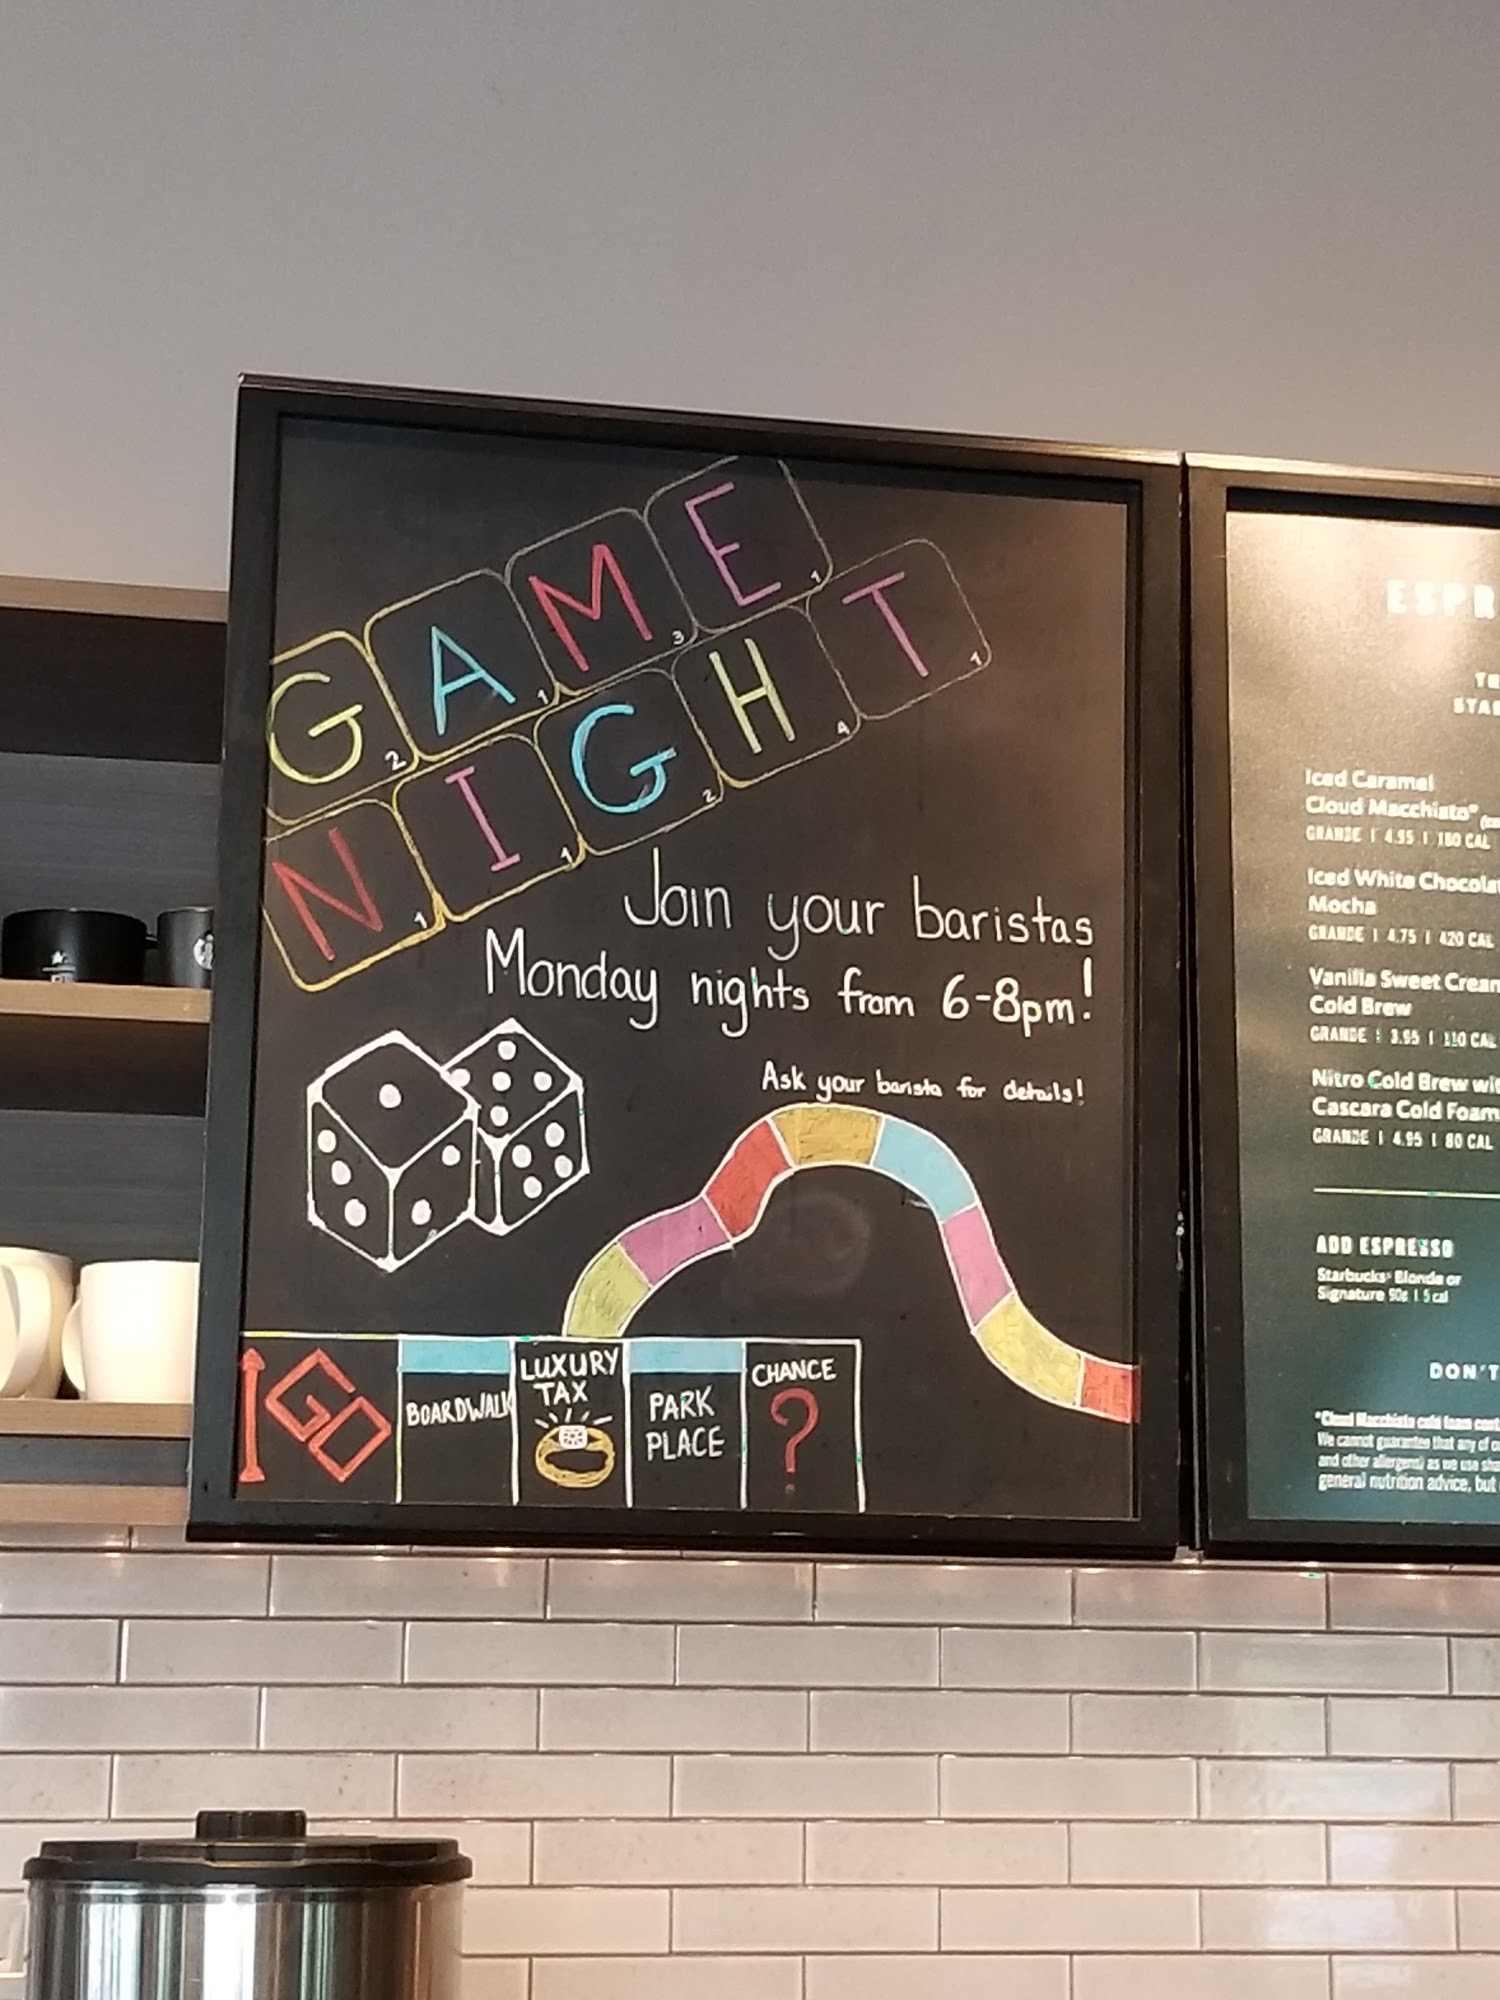 GAME
2 1 3 1
NIGHT
1 1 2 4 1
Join your baristas
Monday nights from 6-8pm!
Ask your barista for details!
GO
BOARDWALK
LUXURY
TAX
PARK
PLACE
CHANCE
?
Iced Caramel
Cloud Macchiato®
GRANDE | 4.95 |
Iced White
Mocha
GRANDE | 4.75 | 420 CAL
Vanilla Sweet
Cold Brew
GRANDE | 3.95 | 110 CAL
Nitro Cold Brew
Cascara Cold Foam
GRANDE | 4.95 | 80 CAL
ADD ESPRESSO
Starbucks® Blonde or
Signature 90¢ | 5 cal
DON'T
*Cloud Macchiato
We cannot guarantee that any of
and other allergens) as we use
general nutrition advice, but